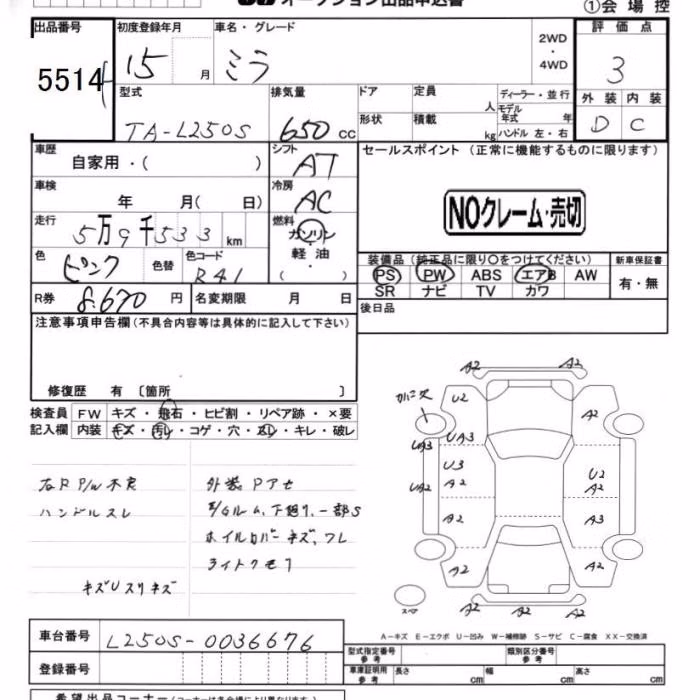 オークション出品申込書
①会場控
出品番号 初度登録年月 車名・グレード 評価点
5514 15 月 ミラ 2WD・4WD 3
型式 排気量 ドア 定員 人 ディーラー・並行 外装 内装
TA-L250S 650 cc 形状 積載 kg モデル年式 年 ハンドル 左・右 D C
車歴 自家用・( ) シフト AT セールスポイント (正常に機能するものに限ります)
車検 年 月( 日) 冷房 AC
NOクレーム・売切
走行 5万9千533 km 燃料 ガソリン・軽油・( )
色 ピンク 色替 色コード R41
装備品 (純正品に限り○をつけてください) 新車保証書
PS PW ABS エアB AW 有・無
SR ナビ TV カワ
R券 8,670 円 名変期限 月 日 後日品
注意事項申告欄 (不具合内容等は具体的に記入して下さい)
修復歴 有 〔箇所 〕
検査員 FW キズ・飛石・ヒビ割・リペア跡・×要
記入欄 内装 キズ・汚レ・コゲ・穴・スレ・キレ・破レ
右R P/W 不良
ハンドルスレ
キズUスリキズ
外装 Pアセ
E/Gルーム、下廻り、一部S
ホイルカバーキズ、ワレ
ライトクモリ
A2 A2
カバー欠 U2 A2
UA3 UA3
U3 U2
UA2 A2 A2
A2 A3
A2 A2
スペア A2 A2 A2
A-キズ E-エクボ U-凹み W-補修跡 S-サビ C-腐食 XX-交換済
車台番号 L250S-0036676
型式指定番号 参考 類別区分番号 参考
登録番号 車庫証明用 参考 長さ cm 幅 cm 高さ cm
希望出品コーナー